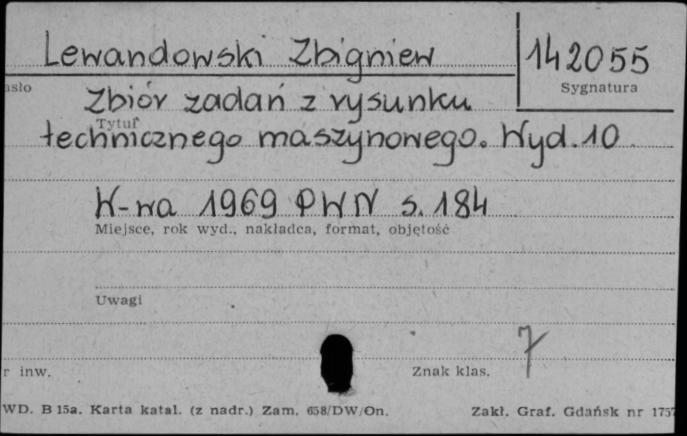 Lewandowski Zbigniew
142055
Sygnatura
Zbiór zadań z rysunku
Tytuł
technicznego maszynowego. Wyd. 10
W-wa 1969 PWN s. 184
Miejsce, rok wyd., nakładca, format, objętość
Uwagi
7
r inw.
Znak klas.
WD. B 15a. Karta katal. (z nadr.) Zam. 658/DW/On.
Zakł. Graf. Gdańsk nr 1757